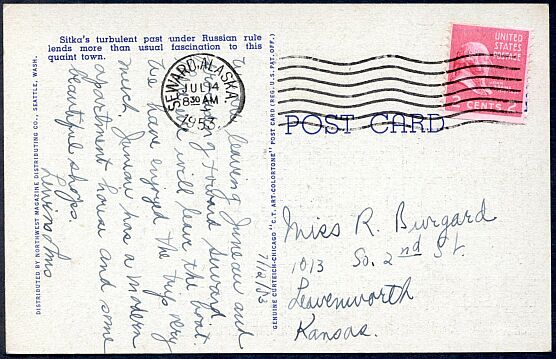 Sitka's turbulent past under Russian rule
lends more than usual fascination to this
quaint town.
leaving Juneau and
going toward Seward
will leave the boat.
We have enjoyed the trip very
much. Juneau has a modern
apartment house and some
beautiful shops.
7/12/53
DISTRIBUTED BY NORTHWEST MAGAZINE DISTRIBUTING CO., SEATTLE, WASH.
GENUINE CURTEICH-CHICAGO "C.T. ART-COLORTONE" POST CARD (REG. U.S. PAT. OFF.)
SEWARD, ALASKA
JUL 14
8 30 AM
1953
UNITED
STATES
POSTAGE
2 CENTS 2
POST CARD
Miss R. Burgard
1013 So. 2nd St.
Leavenworth
Kansas.